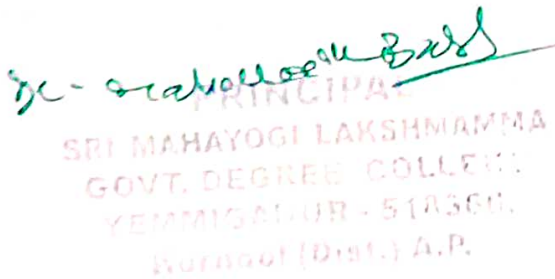 PRINCIPAL
SRI MAHAYOGI LAKSHMAMMA
GOVT. DEGREE COLLEGE
YEMMIGANUR - 518360.
Kurnool (Dist.) A.P.